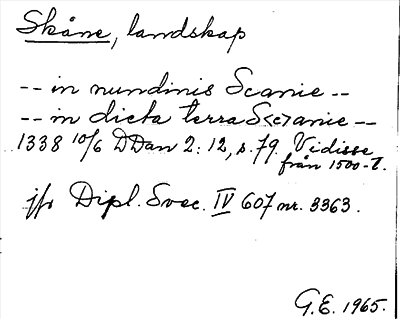 Skåne, landskap
-- in nundinis Scanie --
-- in dicta terra S<c>anie --
1338 10/6 DDan 2:12, s. 79. Vidisse
från 1500-t.
jfr Dipl. Svec. IV 607 nr. 3363.
G.E. 1965.